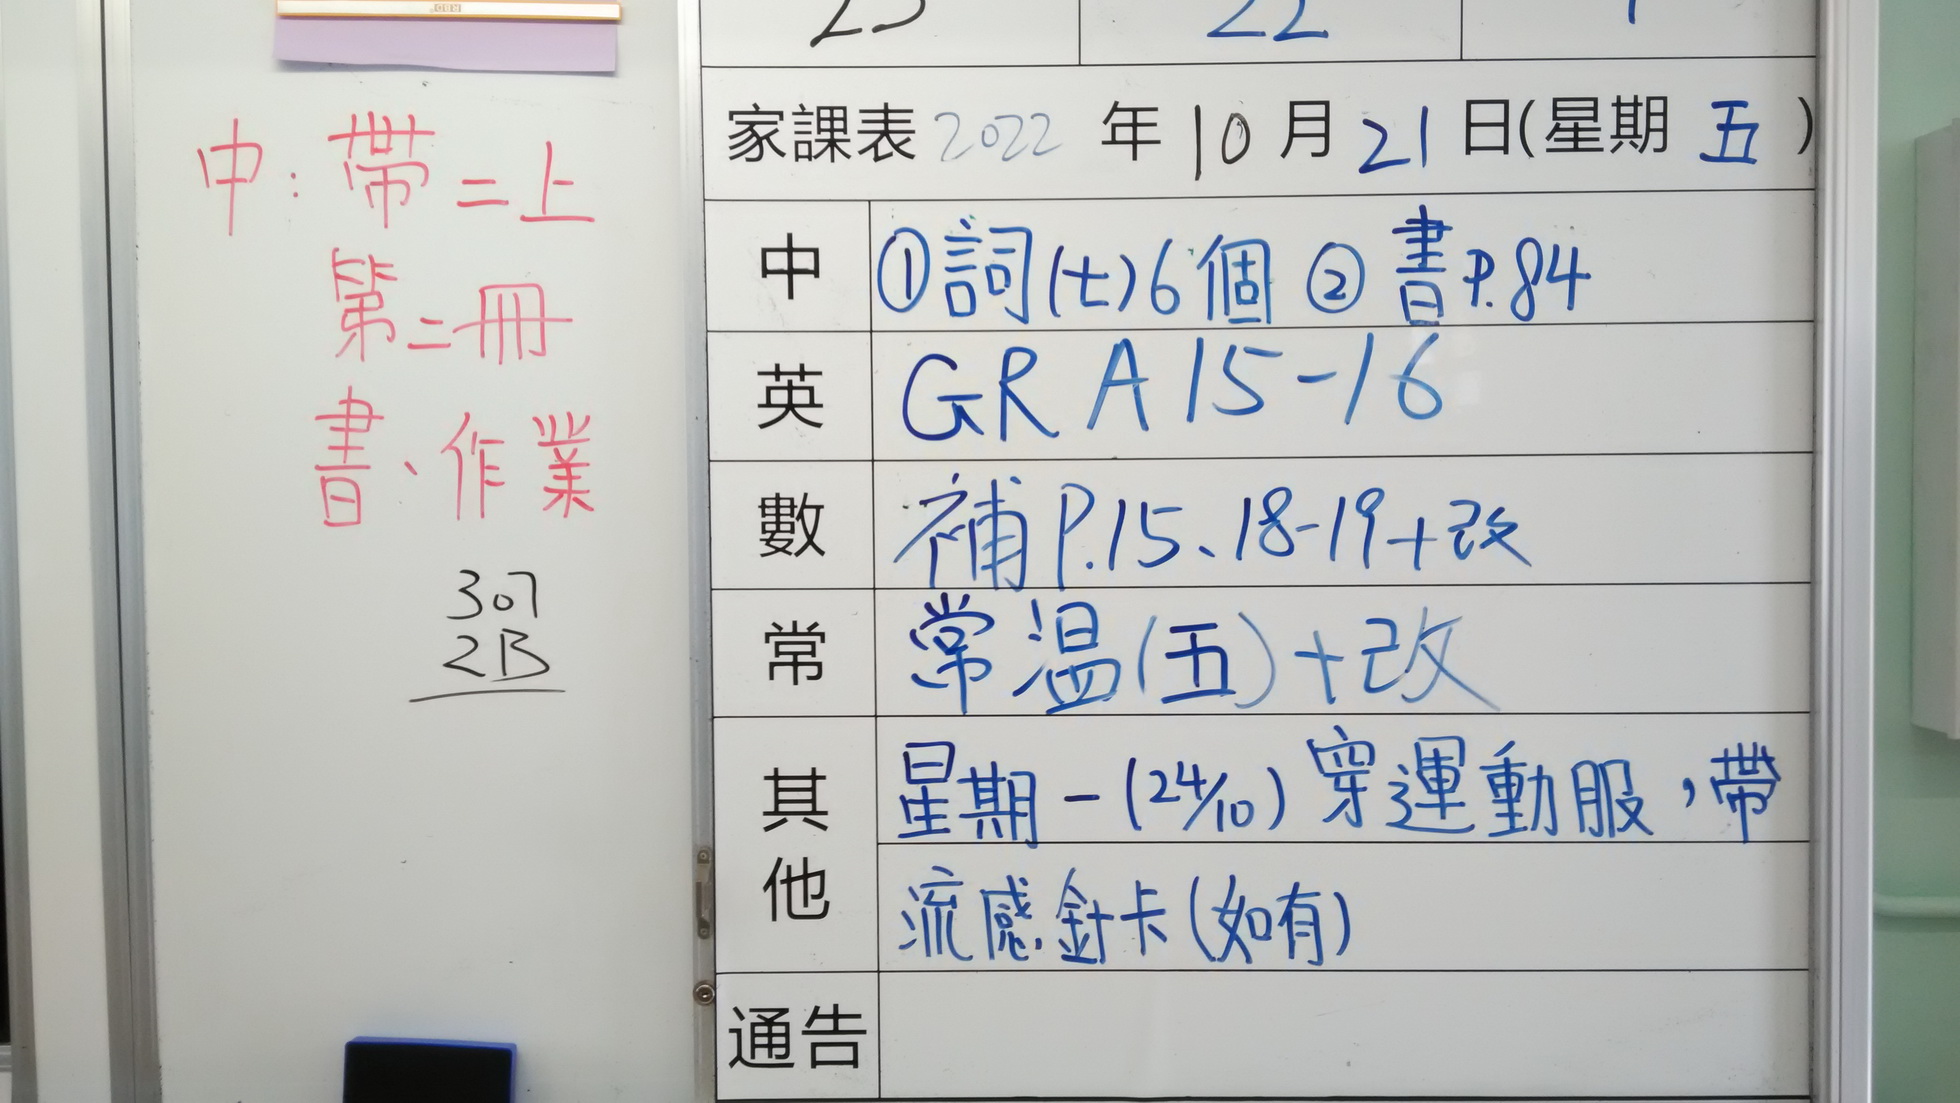 22
中：帶二上
第二冊
書、作業
307
2B
家課表 2022 年 10 月 21 日(星期 五 )
中 ①詞(七)6個 ②書P.84
英 GR A 15-16
數 補P.15、18-19+改
常 常温(五)+改
其他 星期一(24/10)穿運動服，帶
流感針卡(如有)
通告